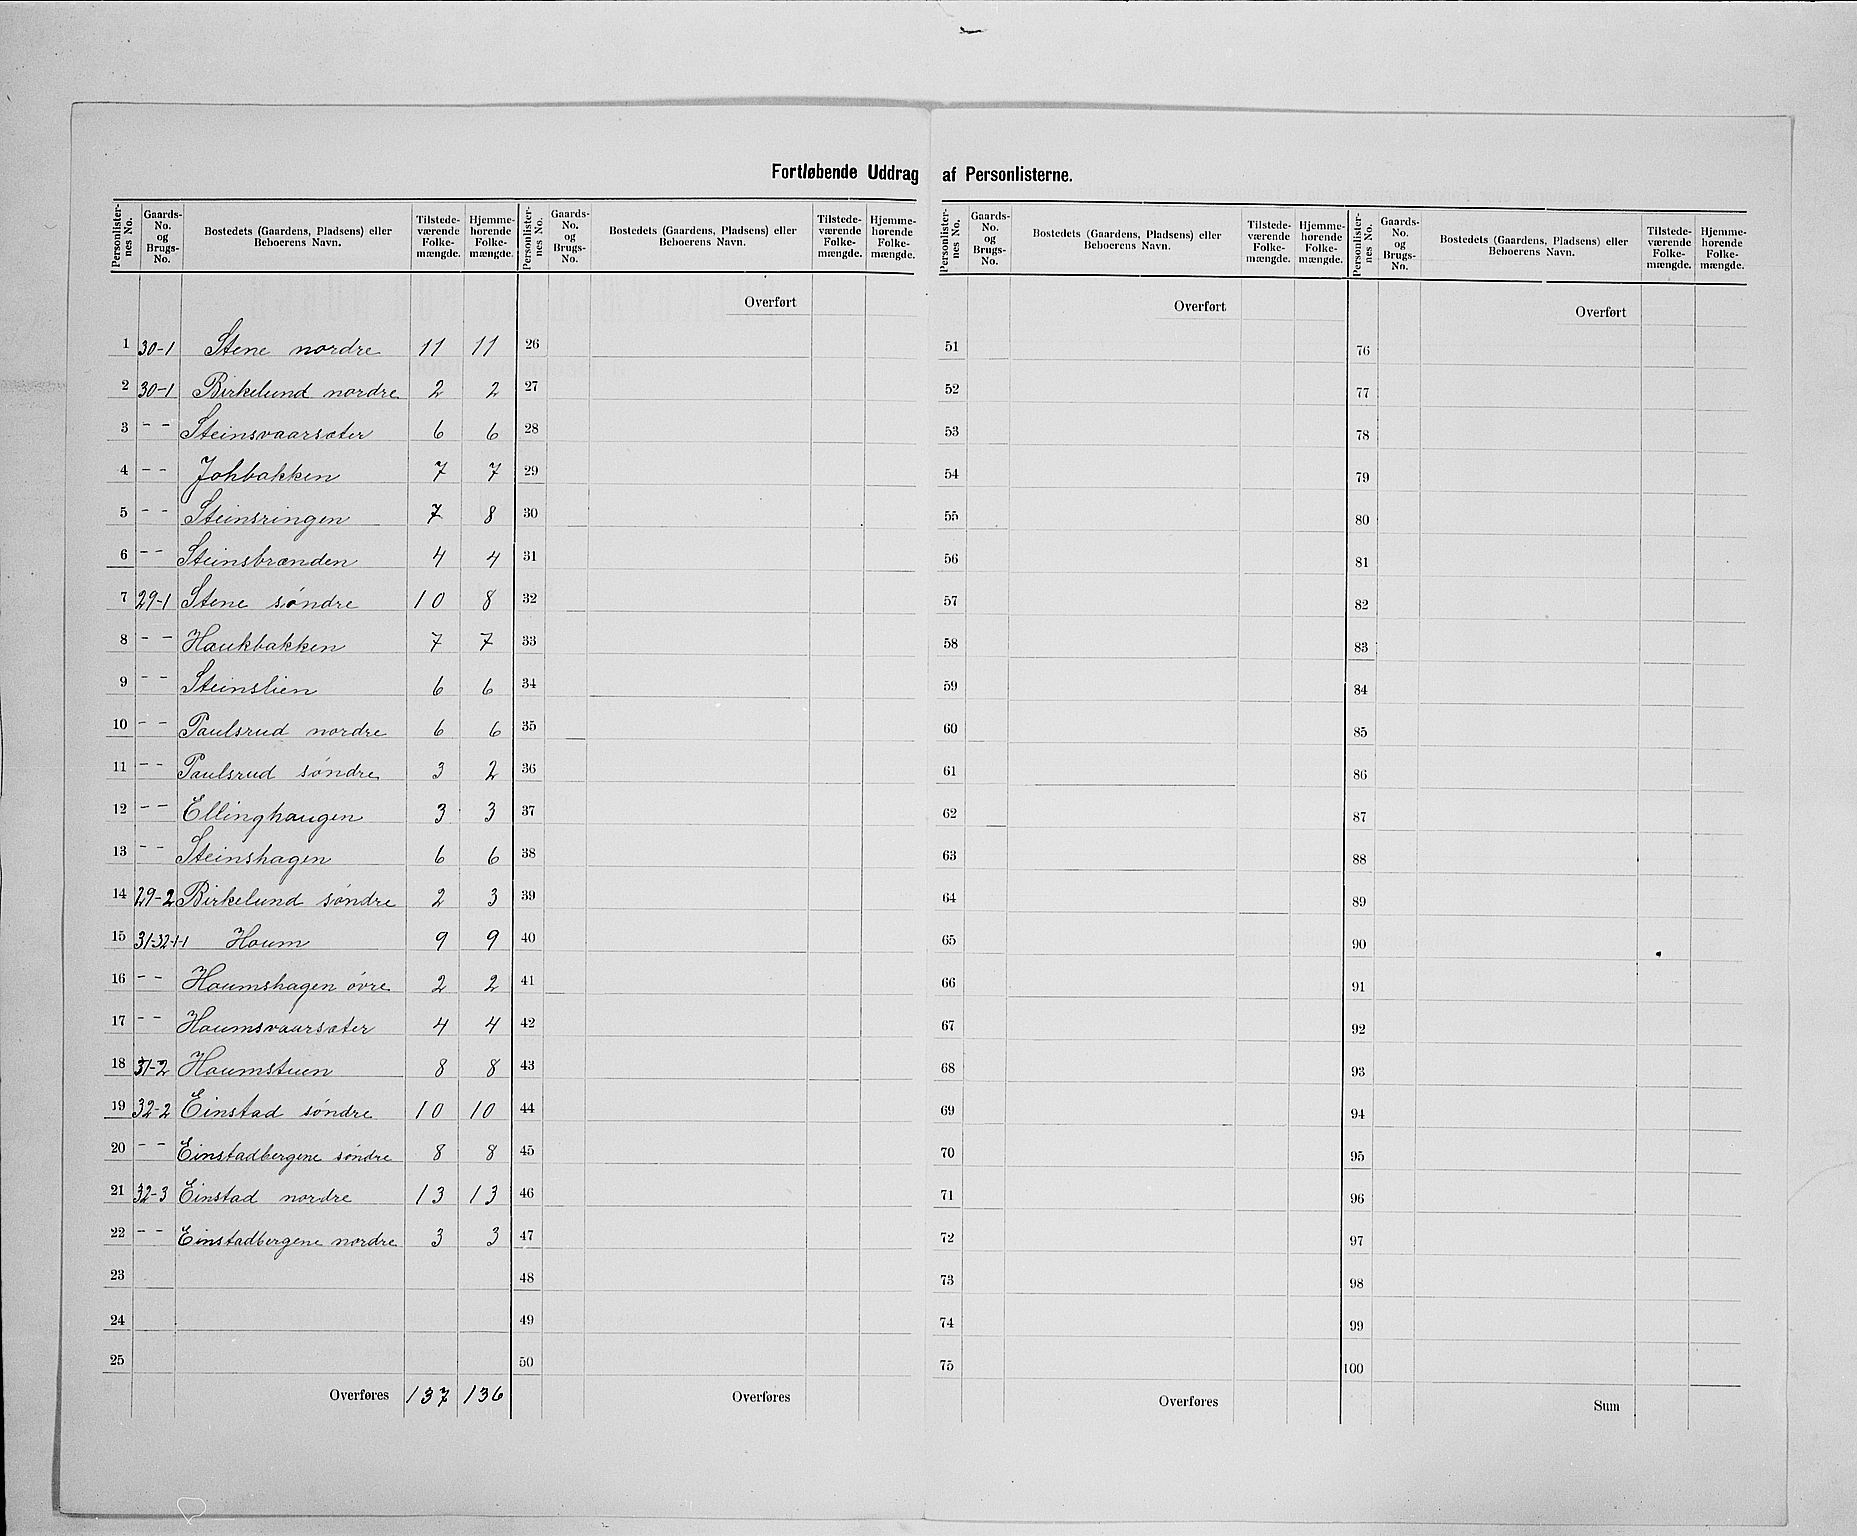 Fortløbende Uddrag af Personlisterne.
Personlisternes No. Gaards-No. og Brugs-No. Bostedets (Gaardens, Pladsens) eller Beboerens Navn. Tilstedeværende Folkemængde. Hjemmehørende Folkemængde.
1 30-1 Stene nordre 11 11
2 30-1 Birkelund nordre 2 2
3 - - Steinsvaarsæter 6 6
4 - - Johbakken 7 7
5 - - Steinsringen 7 8
6 - - Steinsbrænden 4 4
7 29-1 Stene søndre 10 8
8 - - Haukbakken 7 7
9 - - Steinslien 6 6
10 - - Paulsrud nordre 6 6
11 - - Paulsrud søndre 3 2
12 - - Ellinghaugen 3 3
13 - - Steinshagen 6 6
14 29-2 Birkelund søndre 2 3
15 31-32-1-1 Houm 9 9
16 - - Houmshagen øvre 2 2
17 - - Houmsvaarsæter 4 4
18 31-2 Houmstuen 8 8
19 32-2 Einstad søndre 10 10
20 - - Einstadbergene søndre 8 8
21 32-3 Einstad nordre 13 13
22 - - Einstadbergene nordre 3 3
23
24
25
Overføres 137 136
Personlisternes No. Gaards-No. og Brugs-No. Bostedets (Gaardens, Pladsens) eller Beboerens Navn. Tilstedeværende Folkemængde. Hjemmehørende Folkemængde.
Overført
26
27
28
29
30
31
32
33
34
35
36
37
38
39
40
41
42
43
44
45
46
47
48
49
50
Overføres
Personlisternes No. Gaards-No. og Brugs-No. Bostedets (Gaardens, Pladsens) eller Beboerens Navn. Tilstedeværende Folkemængde. Hjemmehørende Folkemængde.
Overført
51
52
53
54
55
56
57
58
59
60
61
62
63
64
65
66
67
68
69
70
71
72
73
74
75
Overføres
Personlisternes No. Gaards-No. og Brugs-No. Bostedets (Gaardens, Pladsens) eller Beboerens Navn. Tilstedeværende Folkemængde. Hjemmehørende Folkemængde.
Overført
76
77
78
79
80
81
82
83
84
85
86
87
88
89
90
91
92
93
94
95
96
97
98
99
100
Sum